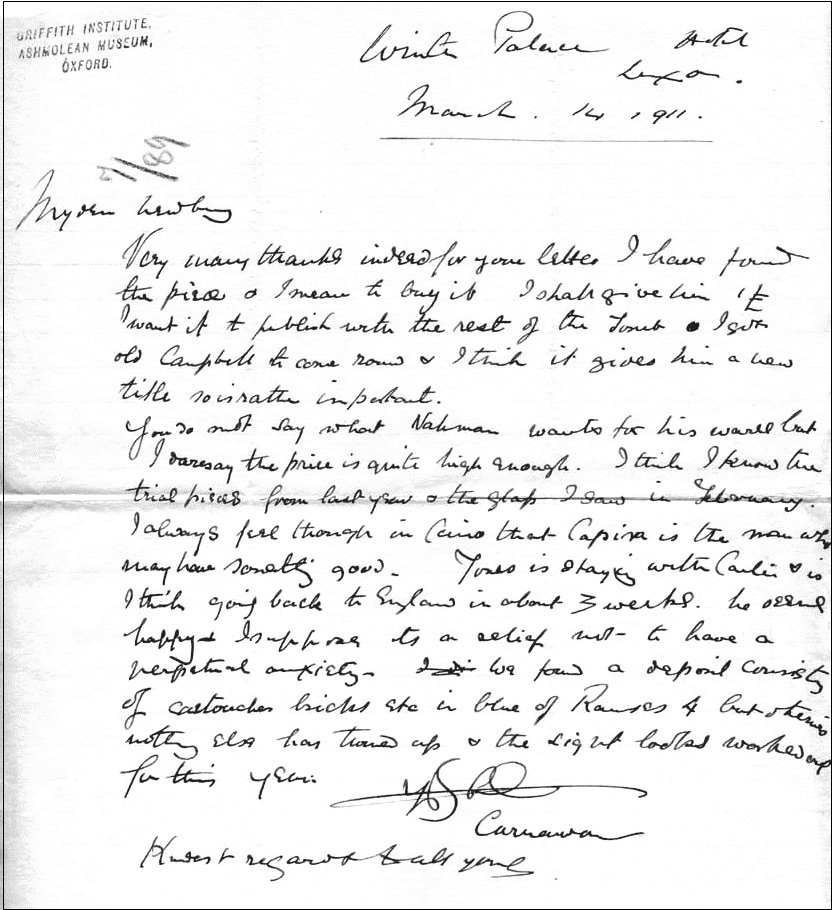 GRIFFITH INSTITUTE,
ASHMOLEAN MUSEUM,
OXFORD.
Winter Palace Hotel
Luxor.
March. 14 1911.
7/89
My dear Newberry
Very many thanks indeed for your letter I have found
the piece & I mean to buy it I shall give him 1£
I want it to publish with the rest of the Tomb I got
old Campbell to come round & I think it gives him a new
title so is rather important.
You do not say what Nahman wants for his wares but
I daresay the price is quite high enough. I think I know the
trial pieces from last year & the glass I saw in February.
I always feel though in Cairo that Capira is the man who
may have something good. Jones is staying with Carter & is
I think going back to England in about 3 weeks. he seems
happy & I suppose its a relief not to have a
perpetual anxiety. We found a deposit consisting
of cartouches bricks etc in blue of Ramses 4 but otherwise
nothing else has turned up & the sight looked worked out
for this year.
Carnarvon
Kindest regards to all yours